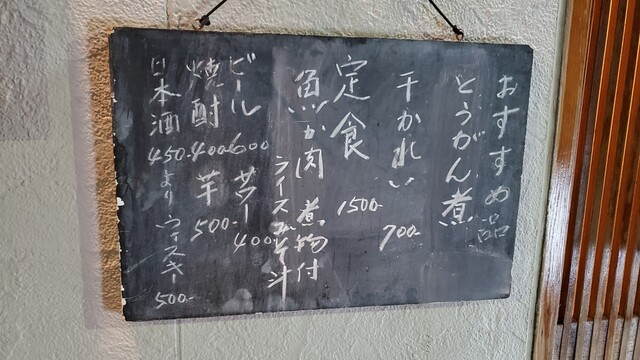 おすすめ品
とうがん煮
干かれい 700-
定食 1500-
魚か肉 煮物付
ライスみそ汁
ビール 600 サワー 400-
焼酎 400- 芋 500-
日本酒 450-より ウィスキー 500-